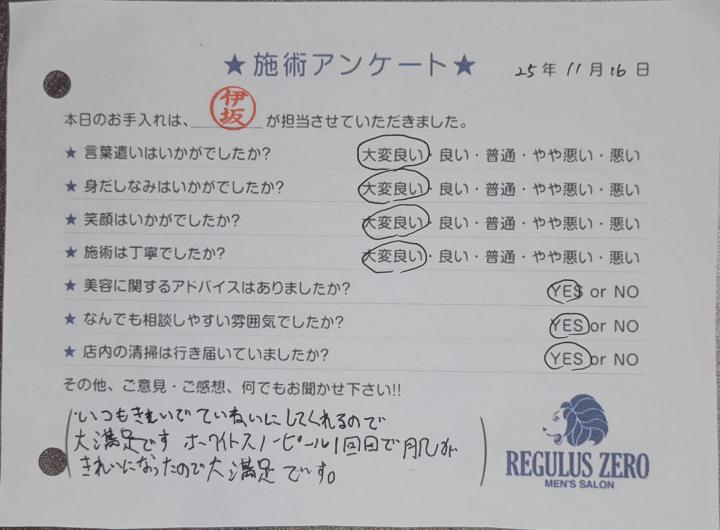 ★施術アンケート★
25年11月16日
本日のお手入れは、伊坂が担当させていただきました。
★ 言葉遣いはいかがでしたか? 大変良い・良い・普通・やや悪い・悪い
★ 身だしなみはいかがでしたか? 大変良い・良い・普通・やや悪い・悪い
★ 笑顔はいかがでしたか? 大変良い・良い・普通・やや悪い・悪い
★ 施術は丁寧でしたか? 大変良い・良い・普通・やや悪い・悪い
★ 美容に関するアドバイスはありましたか? YES or NO
★ なんでも相談しやすい雰囲気でしたか? YES or NO
★ 店内の清掃は行き届いていましたか? YES or NO
その他、ご意見・ご感想、何でもお聞かせ下さい!!
いつもきれいでていねいにしてくれるので
大満足です ホワイトスノーピール1回目で肌が
きれいになったので大満足です。
REGULUS ZERO
MEN'S SALON